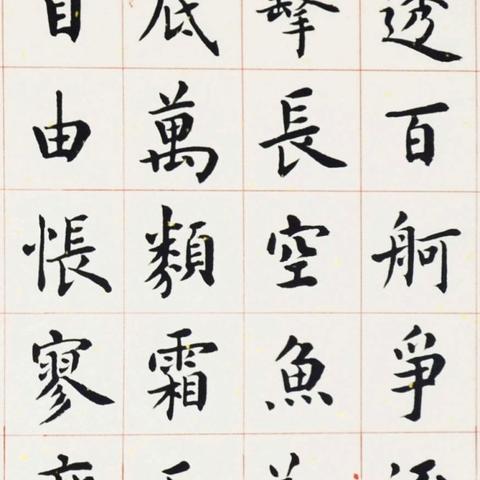 透百舸爭
擊長空魚
底萬類霜
自由悵寥